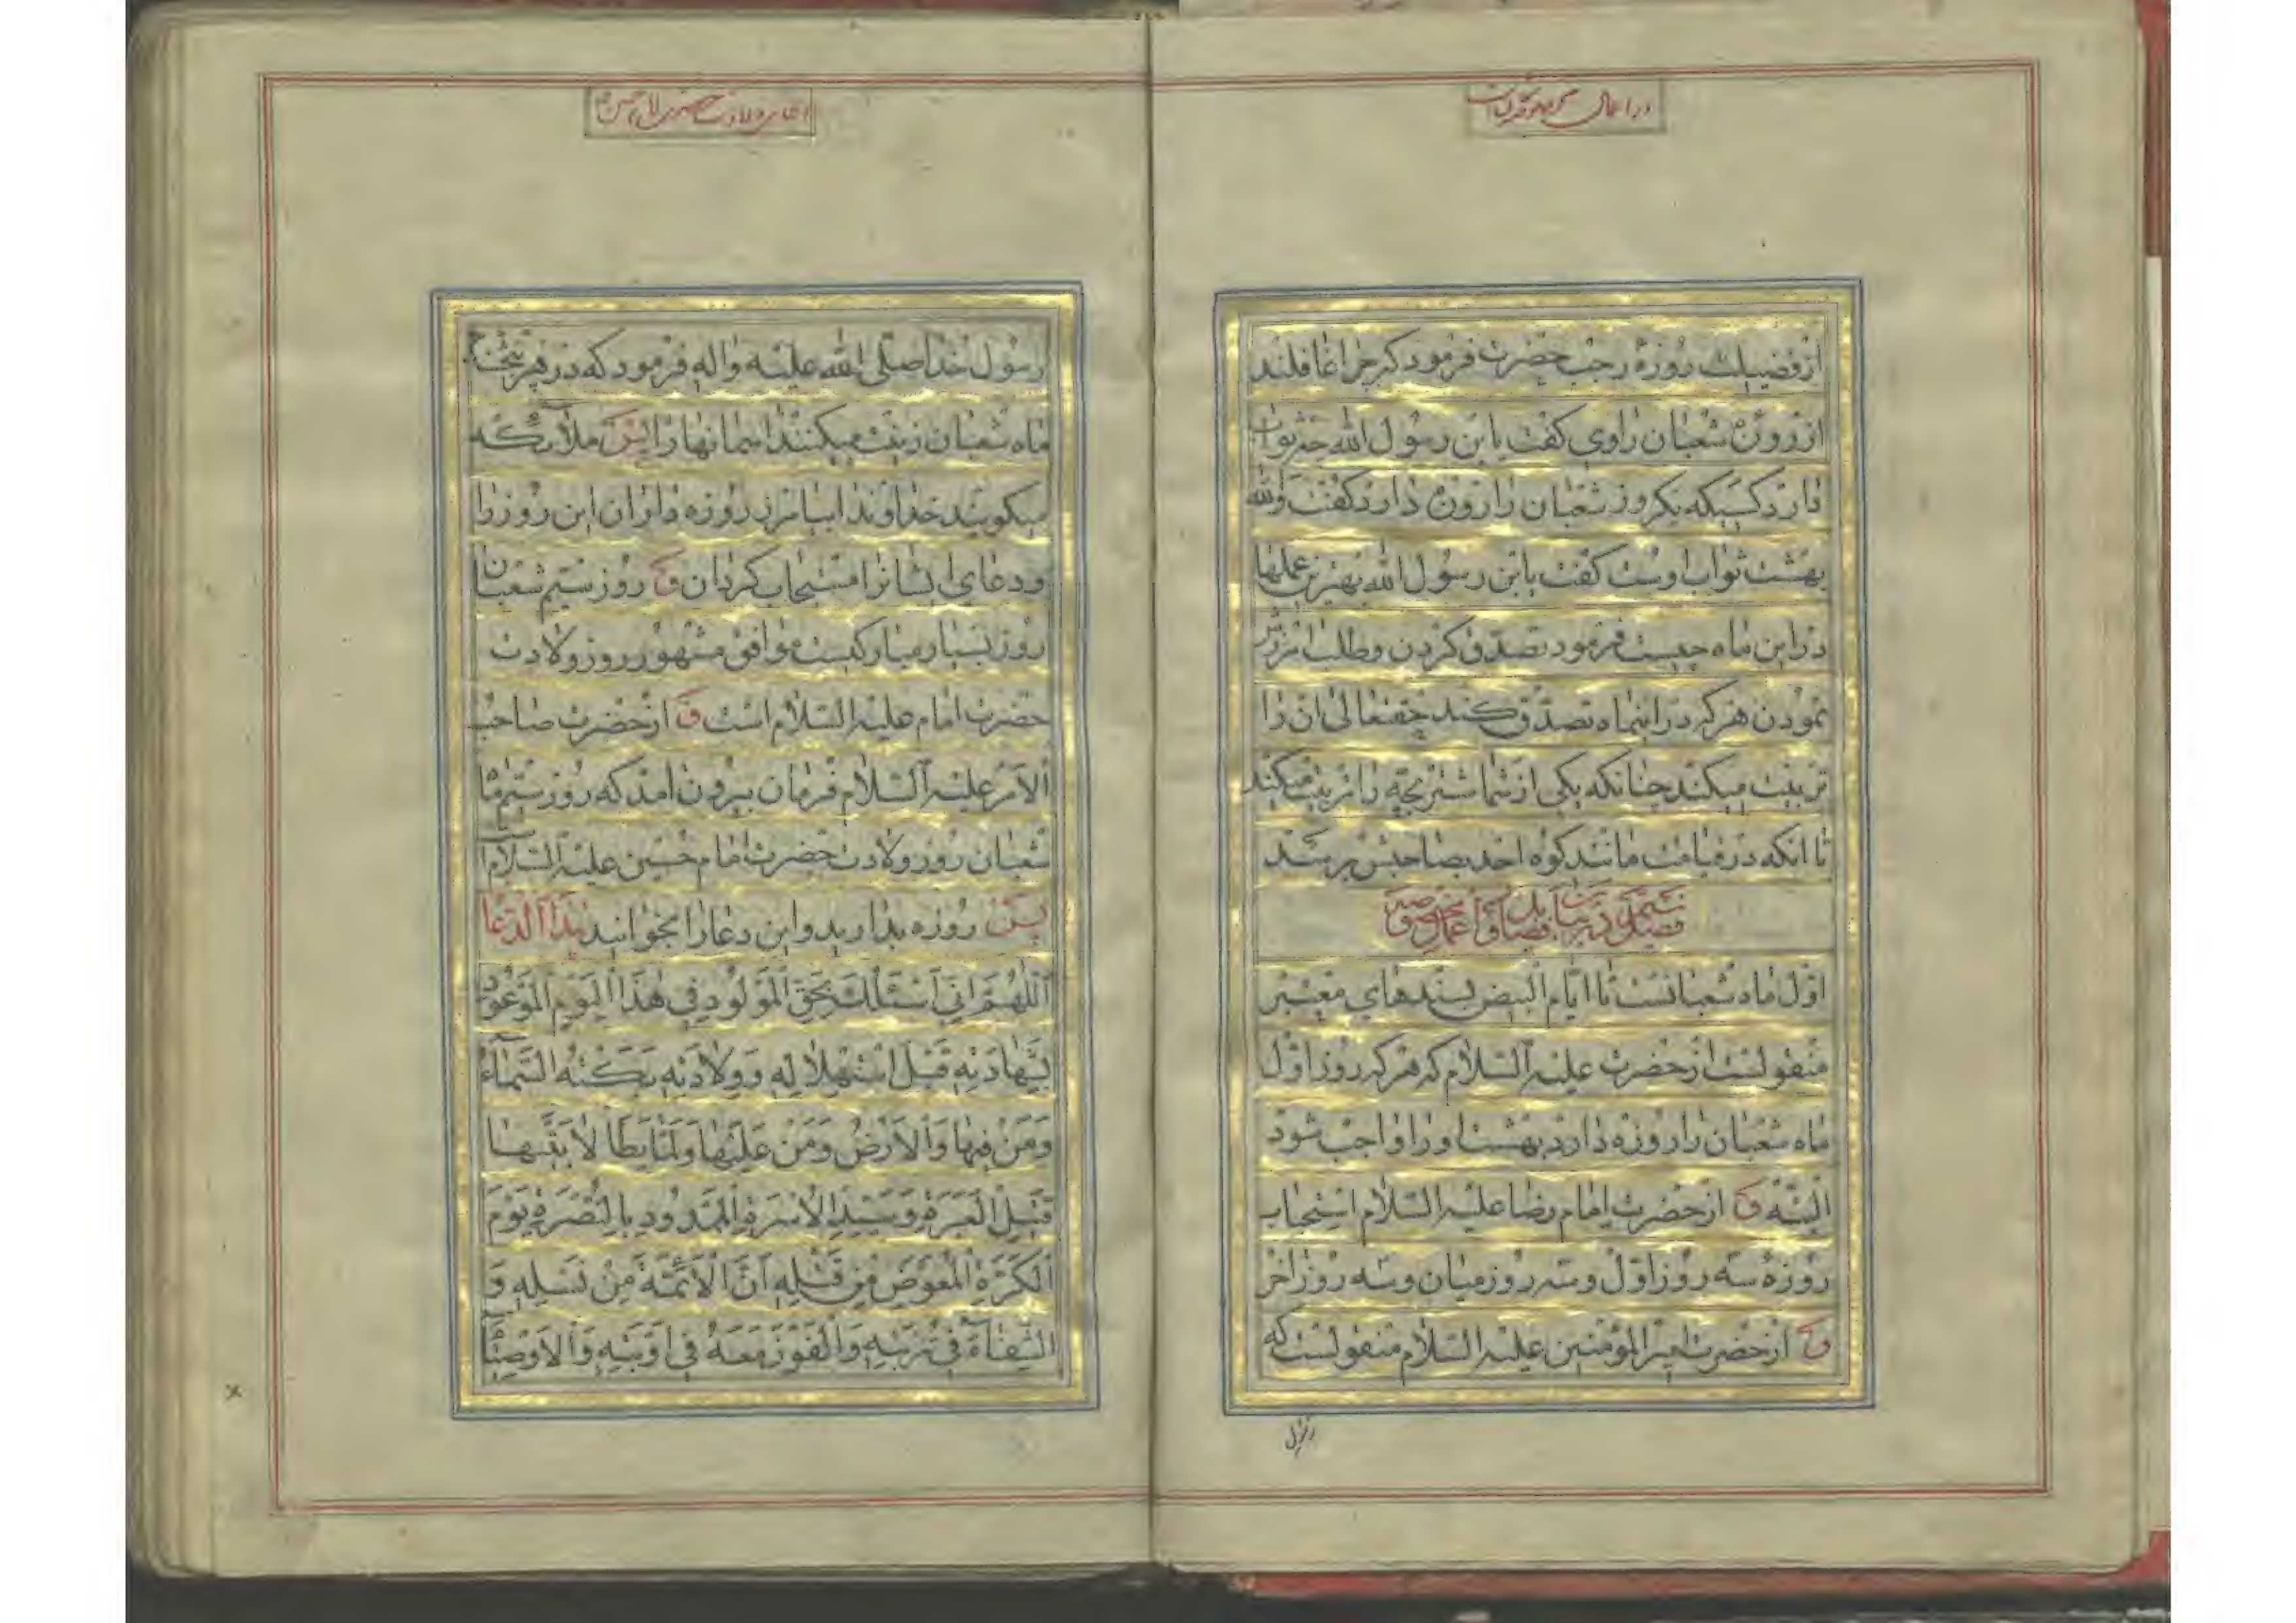 در اعمال
از فضیلت روزه رجب حضرت فرمود که چرا غافلند
از روزه شعبان راوی گفت یا بن رسول الله چه ثواب
دارد کسیکه یکروز شعبان را روزه دارد گفت والله
بهشت ثواب اوست گفت یا بن رسول الله بهترین عملها
در این ماه چیست فرمود تصدق کردن و طلب آمرزش
نمودن هر که در اینماه تصدق کند حقتعالی آن را
تربیت میکند چنانکه یکی از شما شتر بچه را تربیت میکند
تا انکه در قیامت مانند کوه احد بصاحبش برسد
فصل ششم در بیان فضایل و اعمال مخصوصه
اول ماه شعبانست تا ایام البیض بسندهای معتبر
منقولست از حضرت علیه السلام که هر که روز اول
ماه شعبان را روزه دارد بهشت او را واجب شود
البته و از حضرت امام رضا علیه السلام استحباب
روزه سه روز اول و سه روز میان و سه روز اخر
و از حضرت امیر المؤمنین علیه السلام منقولست که
رسول
اعمال ولادت حضرت
رسول خدا صلی الله علیه واله فرمود که در هر پنجشنبه
ماه شعبان زینت میکنند اسمانها را پس ملائکه
میگویند خداوندا بیامرز روزه داران این روز را
و دعای ایشانرا مستجاب گردان و روز سیم شعبان
روز بسیار مبارکیست و موافق مشهور روز ولادت
حضرت امام علیه السلام است و از حضرت صاحب
الامر علیه السلام فرمان بیرون امد که روز سیم ماه
شعبان روز ولادت حضرت امام حسین علیه السلام است
پس روزه بدارید و این دعا را بخوانید هذا الدعا
اَللّهُمَّ اِنّی اَسْئَلُکَ بِحَقِّ الْمَوْلُودِ فی هٰذَا الْیَوْمِ الْمَوْعُودِ
بِشَهادَتِهِ قَبْلَ اسْتِهْلالِهِ وَوِلادَتِهِ بَکَتْهُ السَّماءُ
وَمَنْ فیها وَالْاَرْضُ وَمَنْ عَلَیْها وَلَمّا یَطَأْ لابَتَیْها
قَتیلِ الْعَبَرَةِ وَسَیِّدِ الْاُسْرَةِ الْمَمْدُودِ بِالنُّصْرَةِ یَوْمَ
الْکَرَّةِ الْمُعَوَّضِ مِنْ قَتْلِهِ اَنَّ الْاَئِمَّةَ مِنْ نَسْلِهِ وَ
الشِّفاءَ فی تُرْبَتِهِ وَالْفَوْزَ مَعَهُ فی اَوْبَتِهِ وَالْاَوْصِیاءَ